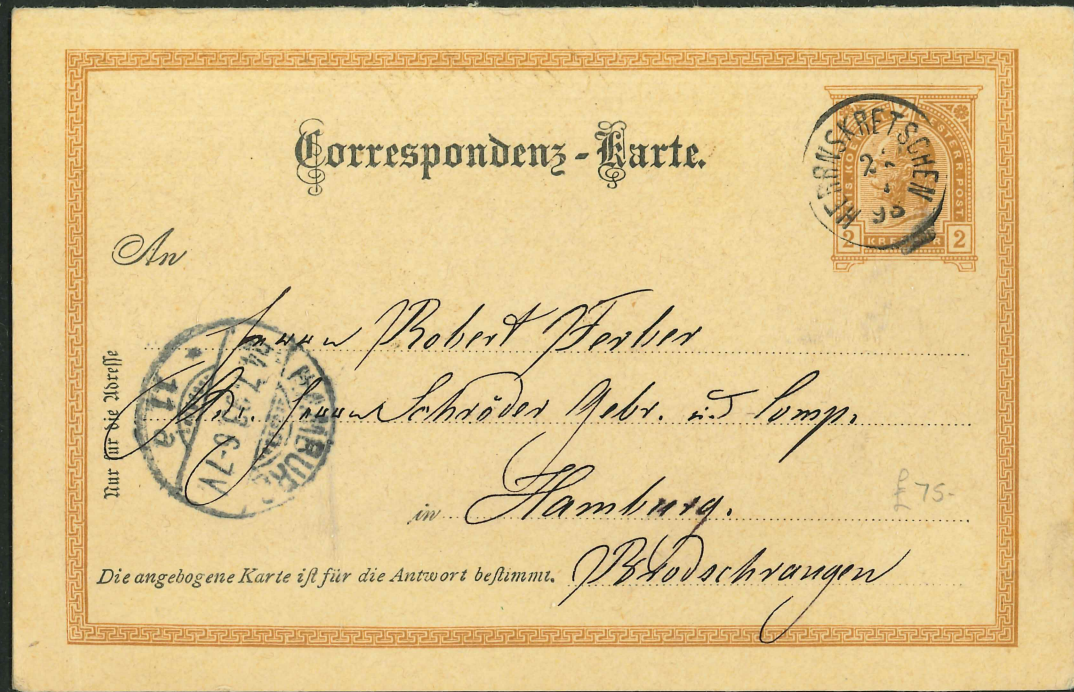 Correspondenz-Karte.
HERRNSKRETSCHEN
2 KREUZER 2
An
Herrn Robert Ferber
Adr. Herren Schröder Gebr. und Comp.
HAMBURG
11a
6-7V
in Hamburg.
Brodschrangen
Nur für die Adresse
Die angebogene Karte ist für die Antwort bestimmt.
£75-